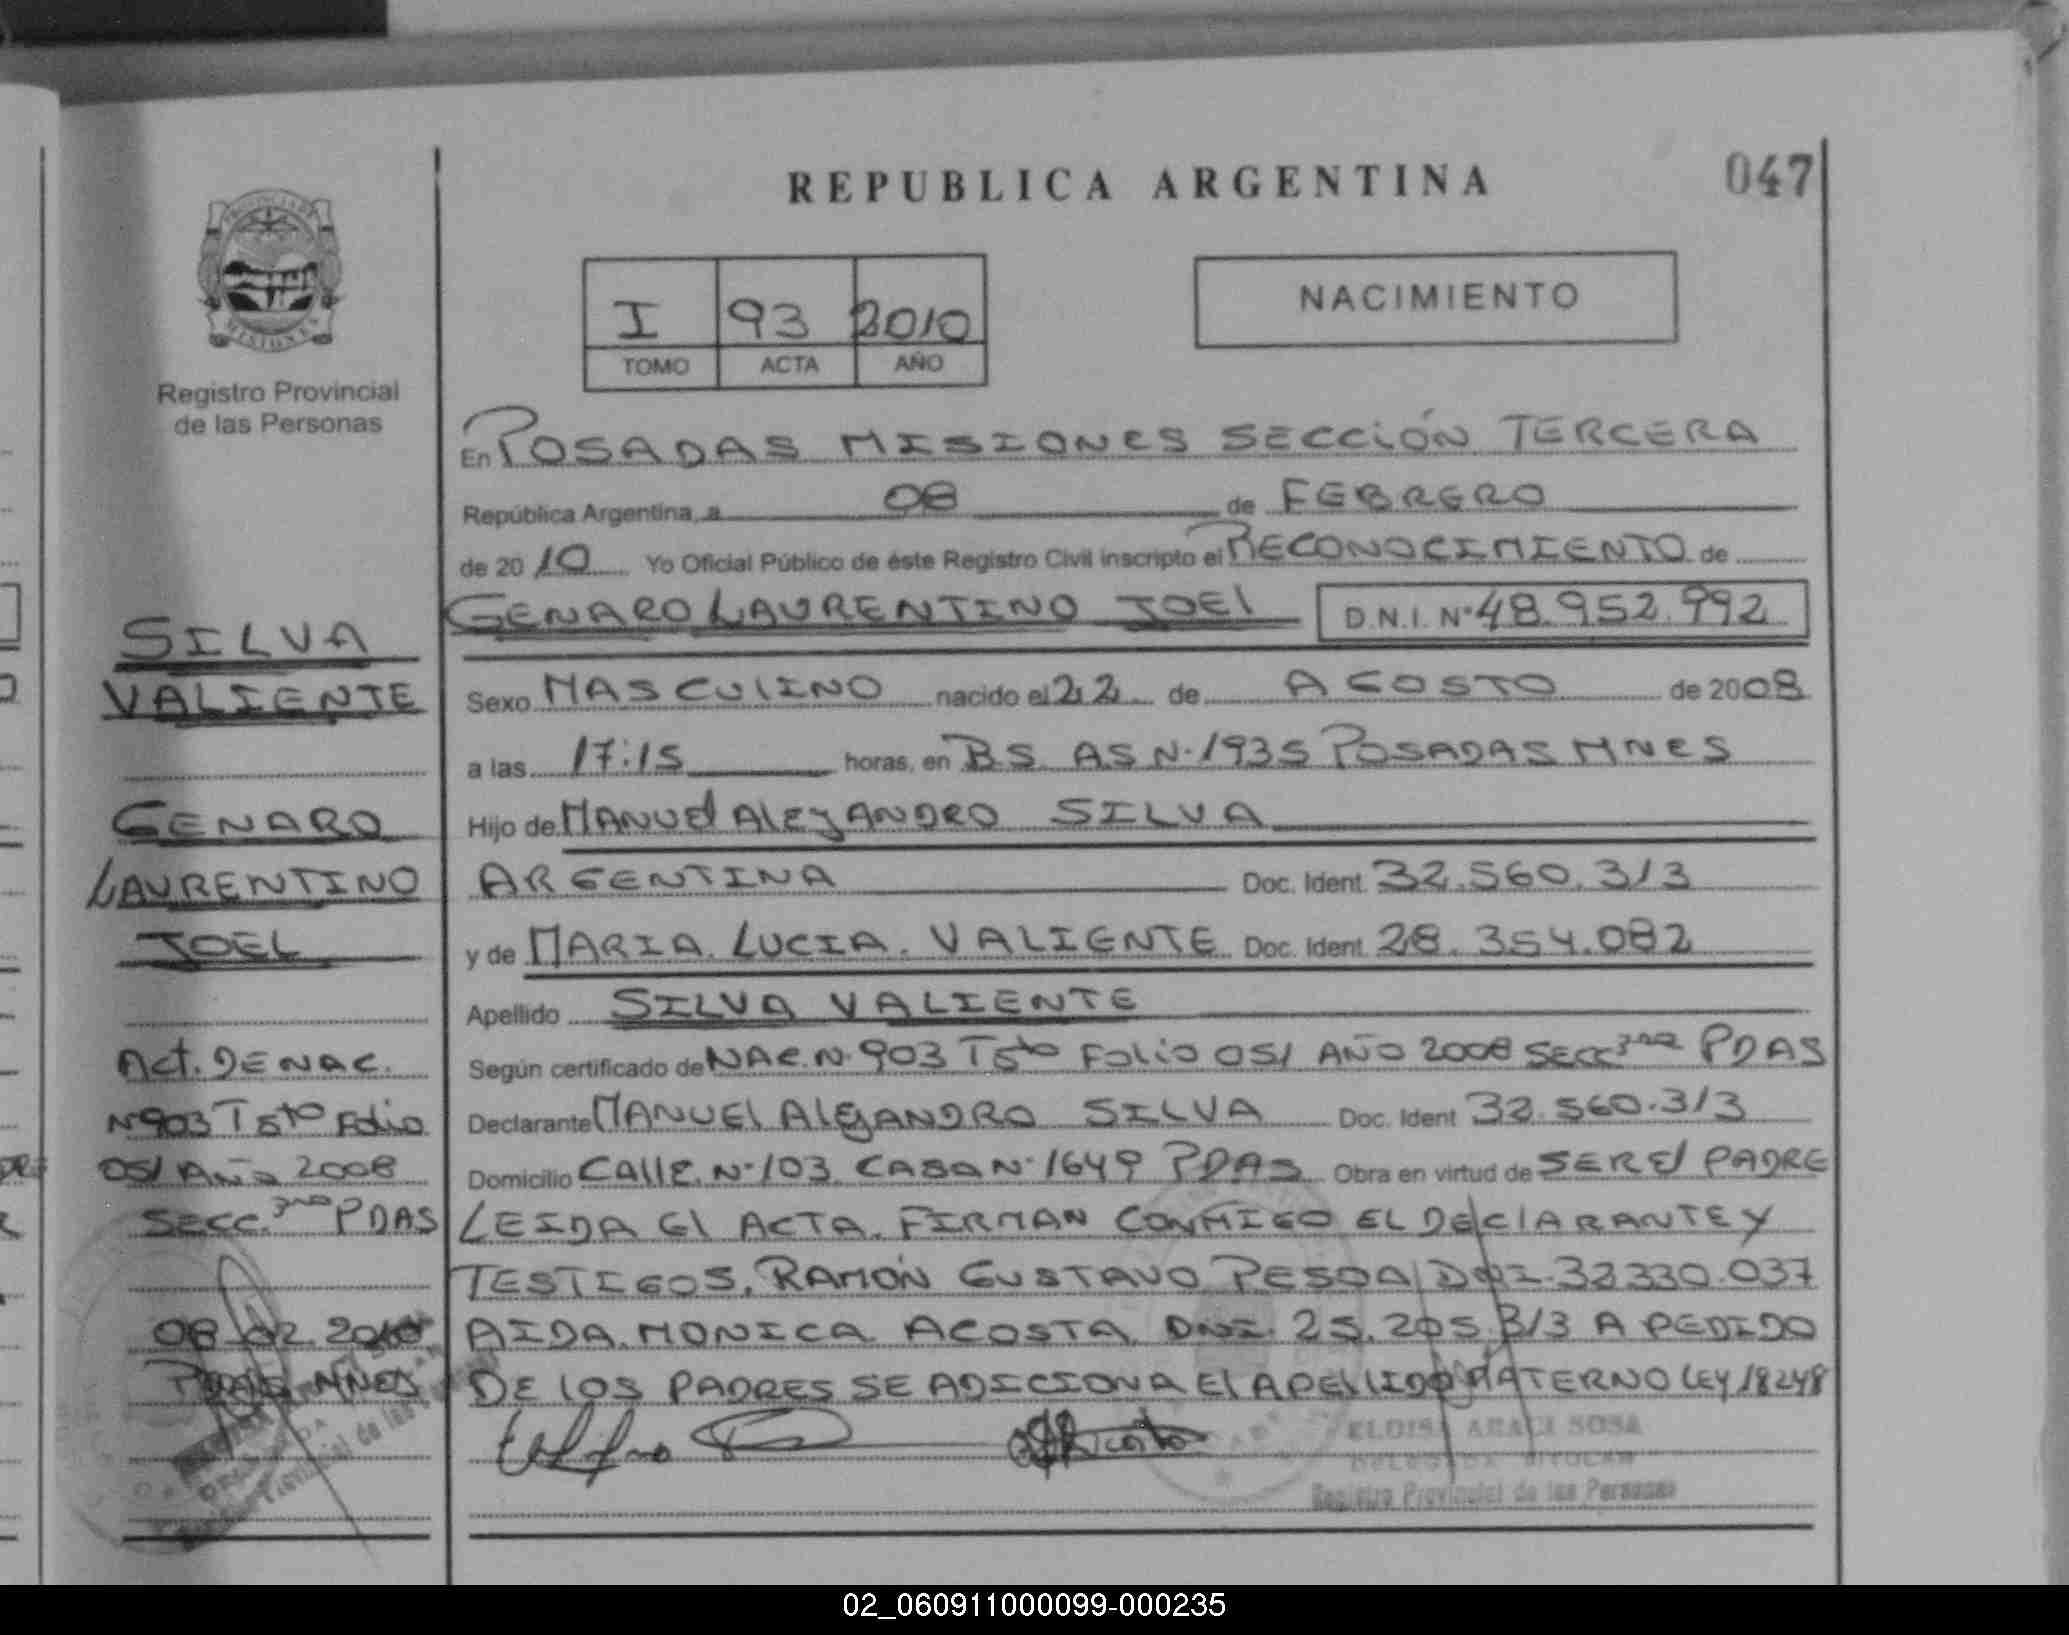 REPUBLICA ARGENTINA
047
I 93 2010
TOMO ACTA AÑO
NACIMIENTO
PROVINCIA DE
MISIONES
Registro Provincial
de las Personas
SILVA
VALIENTE
GENARO
LAURENTINO
JOEL
Act. DE NAC.
Nº 903 T 5to Folio
051 AÑO 2008
SECC. 3ra PDAS
08-02-2010
PDAS MNES
En POSADAS MISIONES SECCIÓN TERCERA
República Argentina, a 08 de FEBRERO
de 2010 Yo Oficial Público de éste Registro Civil inscripto el RECONOCIMIENTO de
GENARO LAURENTINO JOEL D.N.I. Nº 48.952.992
Sexo MASCULINO nacido el 22 de AGOSTO de 2008
a las 17:15 horas, en BS. AS N. 1935 POSADAS MNES
Hijo de MANUEL ALEJANDRO SILVA
ARGENTINA Doc. Ident. 32.560.313
y de MARIA LUCIA VALIENTE Doc. Ident. 28.354.082
Apellido SILVA VALIENTE
Según certificado de NAC. N. 903 T 5to FOLIO 051 AÑO 2008 SECC 3ra PDAS
Declarante MANUEL ALEJANDRO SILVA Doc. Ident 32.560.313
Domicilio CALLE N. 103 CASA N. 1649 PDAS Obra en virtud de SER El PADRE
LEIDA El ACTA. FIRMAN CONMIGO EL DECLARANTE Y
TESTIGOS. RAMÓN GUSTAVO PESOA DNI. 32330.037
AIDA MONICA ACOSTA DNI. 25.205.313 A PEDIDO
DE LOS PADRES SE ADICIONA El APELLIDO MATERNO LEY 18248
ELOISA ARACI SOSA
DELEGADA
Registro Provincial de las Personas
02_060911000099-000235